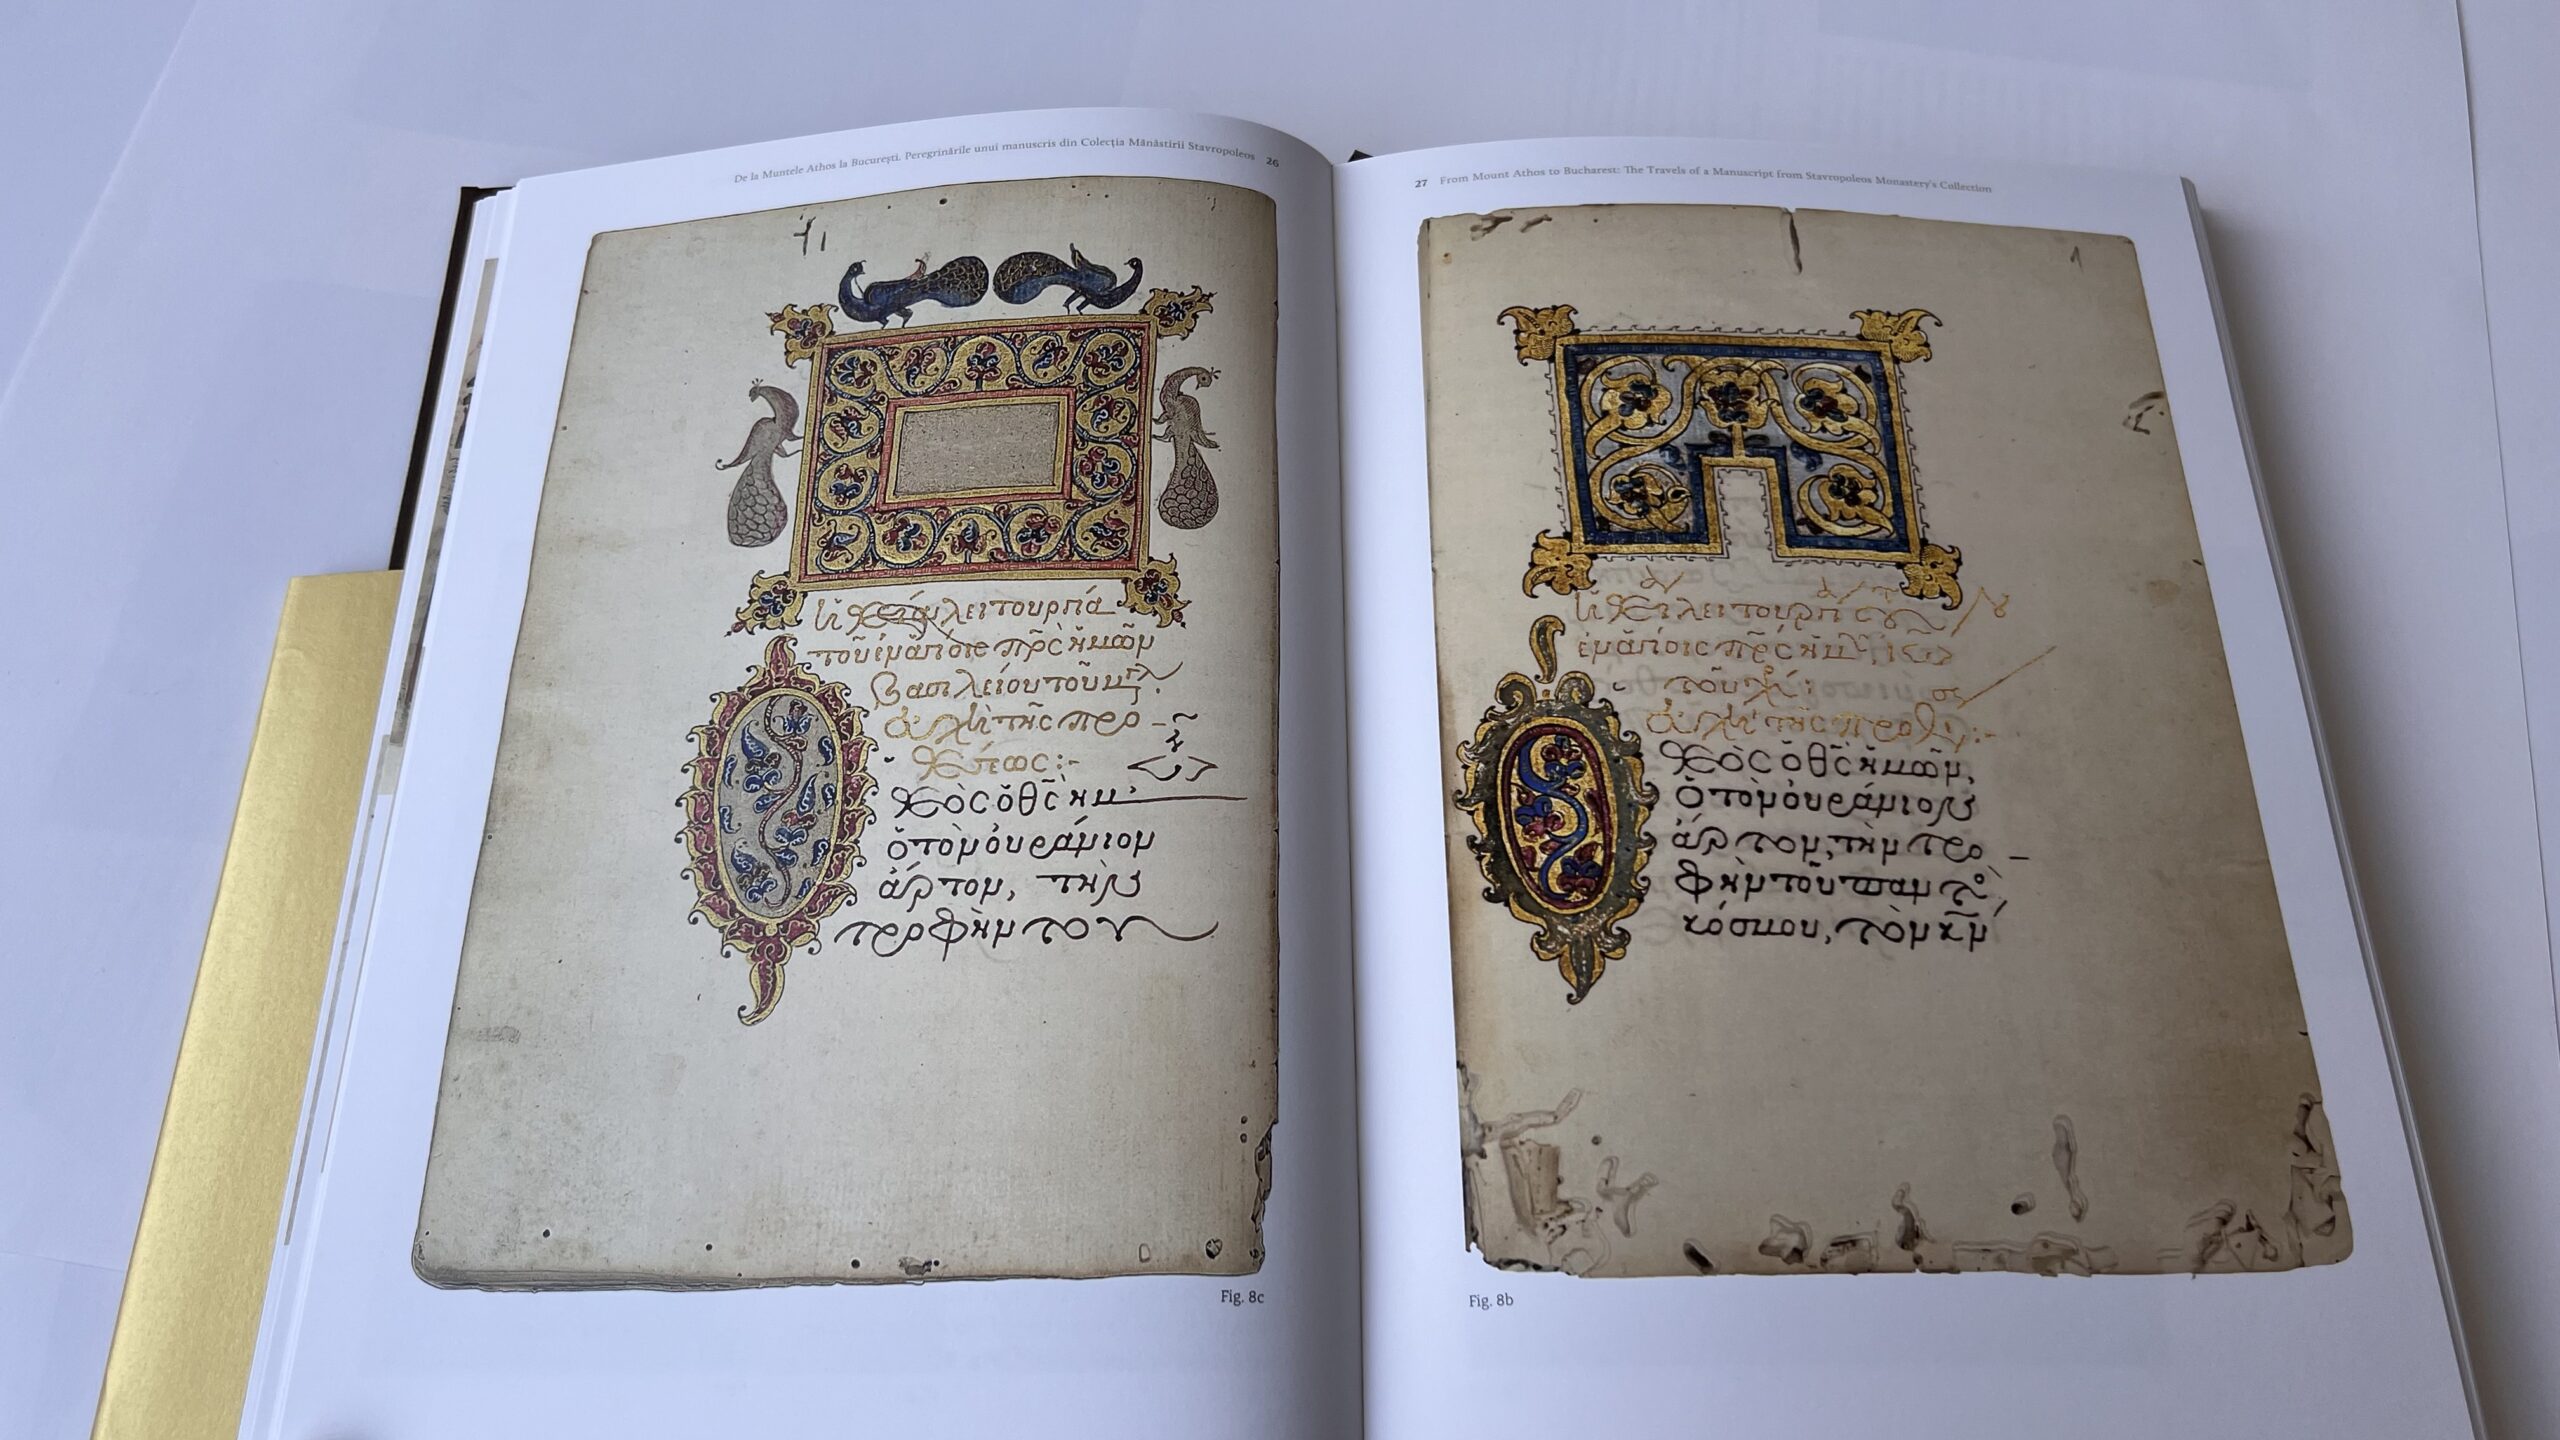 De la Muntele Athos la București. Peregrinările unui manuscris din Colecția Mănăstirii Stavropoleos 26
λειτουργία
τοῦ ἐν ἁγίοις πρς ἡμῶν
Βασιλείου τοῦ
εὐχὴ τῆς προ-
θέσεως:-
Θὸς ὁ θς ἡμ
ὁ τὸν οὐράνιον
ἄρτον, τὴν
τροφὴν του
Fig. 8c
27 From Mount Athos to Bucharest: The Travels of a Manuscript from Stavropoleos Monastery's Collection
1
ἐν ἁγίοις πρς ἡμ
τοῦ
εὐχὴ τῆς προθ:-
Θὸς ὁ θς ἡμῶν,
ὁ τὸν οὐράνιον
ἄρτον, τὴν τρο-
φὴν τοῦ παντὸ
κόσμου, τὸν κν
Fig. 8b